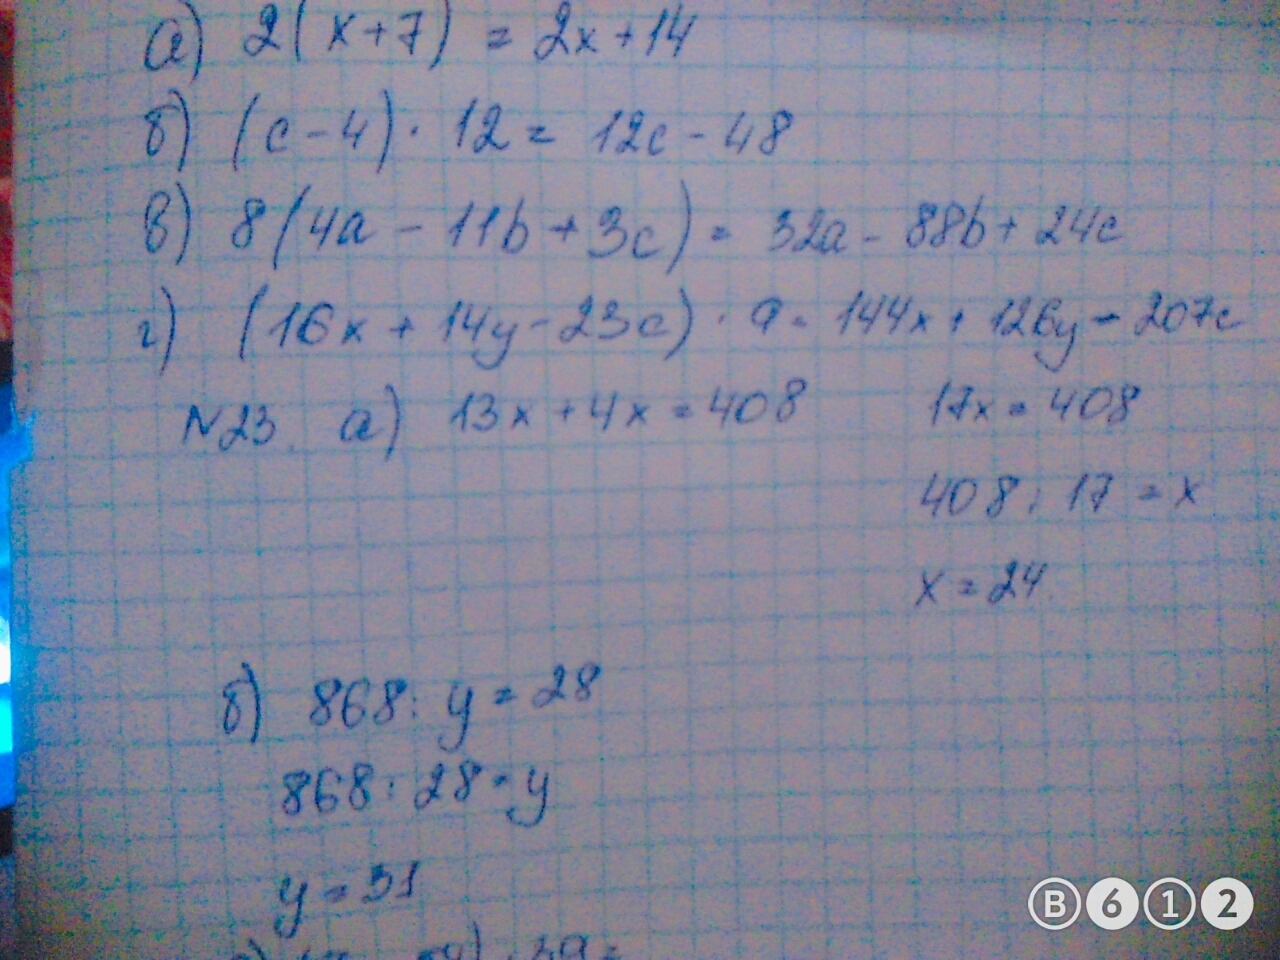 а) 2(x+7) = 2x+14
б) (c-4)·12 = 12c-48
в) 8(4a-11b+3c) = 32a-88b+24c
г) (16x+14y-23c)·9 = 144x+126y-207c
N23. а) 13x+4x=408 17x=408
408:17=x
x=24
б) 868:y=28
868:28=y
y=31
B612